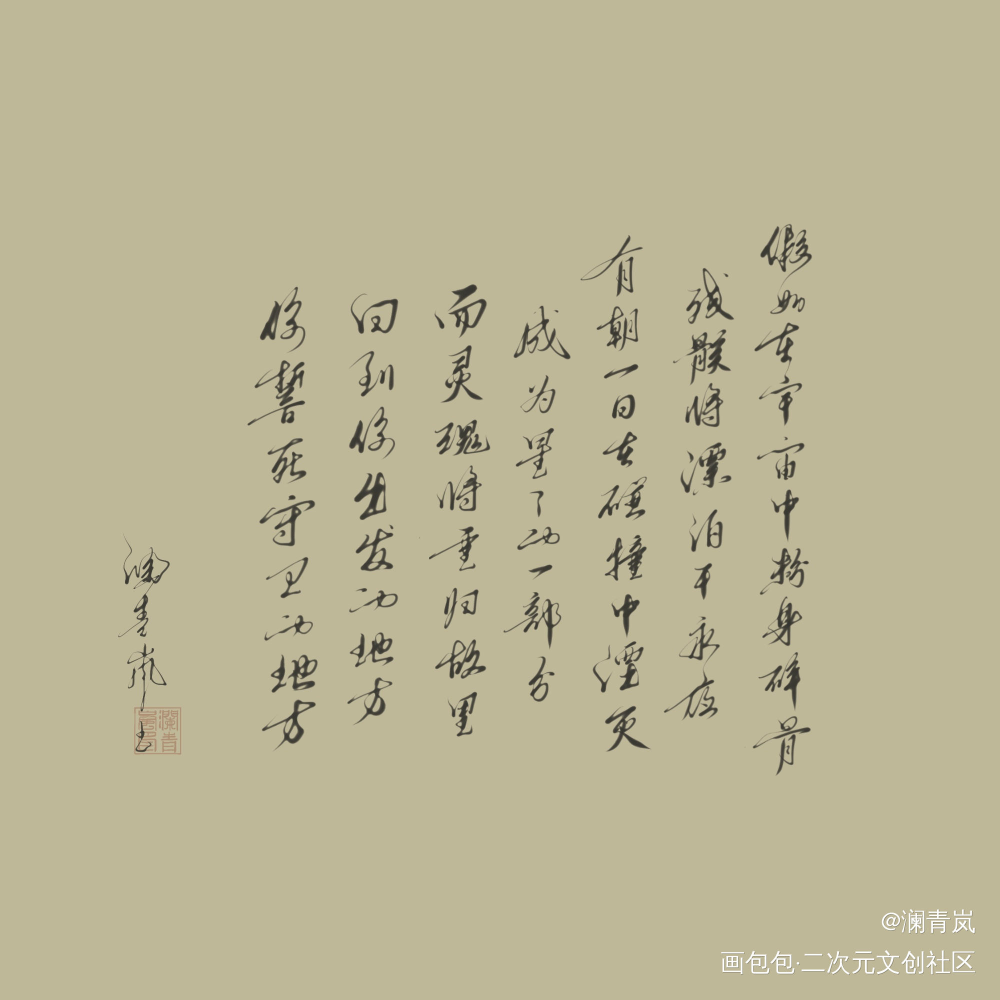 假如在宇宙中粉身碎骨
残骸将漂泊于永夜
有朝一日在碰撞中湮灭
成为星了的一部分
而灵魂将重归故里
回到你出发的地方
你誓死守卫的地方
澜青岚书
澜青岚
@澜青岚
画包包·二次元文创社区